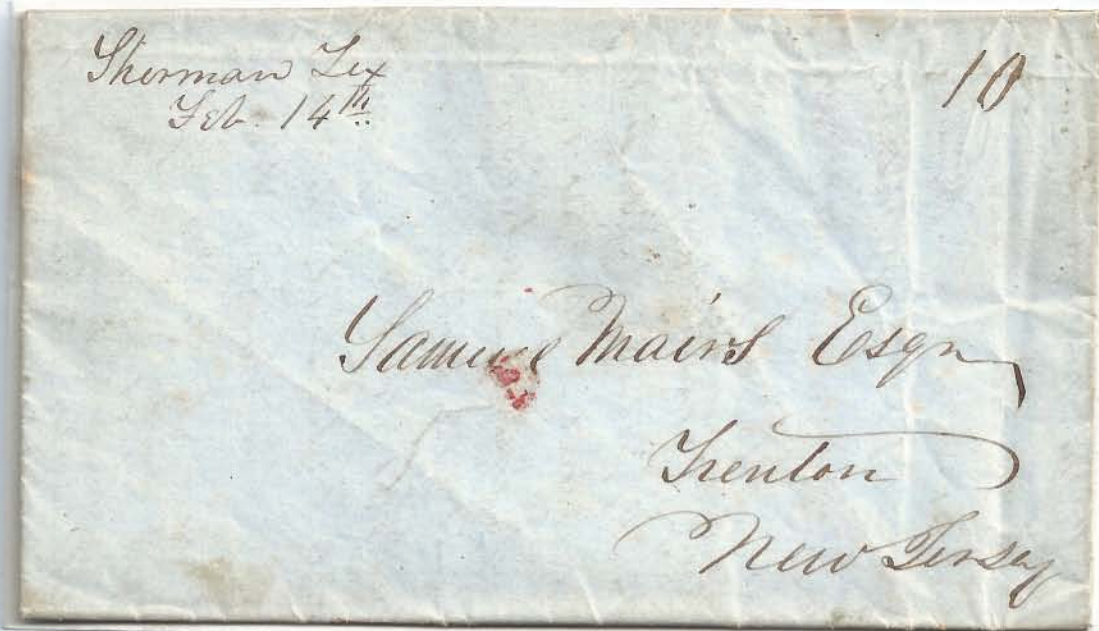 Sherman Tex
Feb. 14th
10
Samuel Mairs Esqr
Trenton
New Jersey